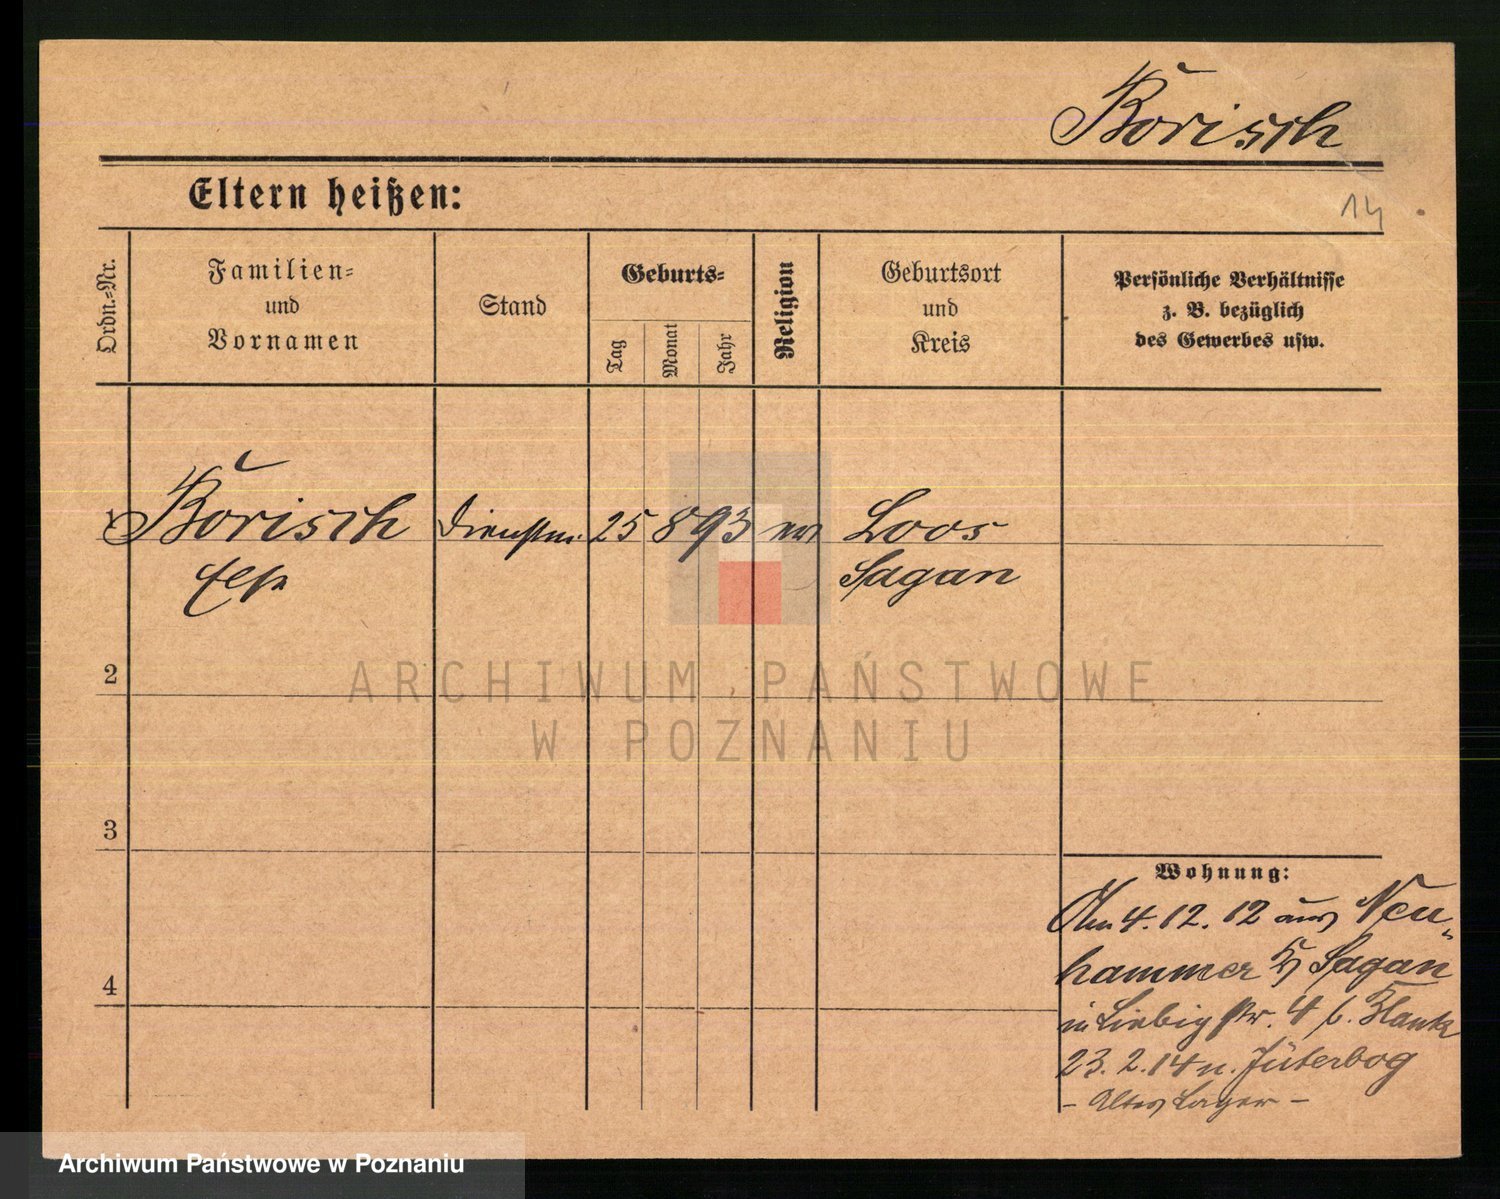 Börisch
Eltern heißen:
14
Ordn.=Nr.
Familien=
und
Vornamen
Stand
Geburts=
Tag
Monat
Jahr
Religion
Geburtsort
und
Kreis
Persönliche Verhältnisse
z. B. bezüglich
des Gewerbes usw.
1
Börisch
Dienstm.
25
8
93
ev
Loos
Else
Sagan
2
ARCHIWUM PAŃSTWOWE
W POZNANIU
3
4
Wohnung:
Am 4. 12. 12 aus Neu-
hammer Kr Sagan
in Liebigstr. 4 b. Blank
23. 2. 14 n. Jüterbog
- Altes Lager -
Archiwum Państwowe w Poznaniu